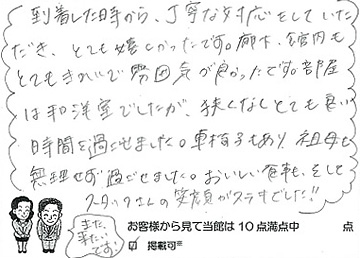 到着した時から、丁寧な対応をしていた
だき、とても嬉しかったです。館内も
とてもきれいで雰囲気が良かったです。部屋
は和洋室でしたが、狭くなくとても良い
時間を過ごせました。車椅子もあり、祖母も
無理せず過ごせました。おいしい食事、そして
スタッフさんの笑顔がステキでした!!
また、
来たい
です!
お客様から見て当館は10点満点中 点
☑ 掲載可※